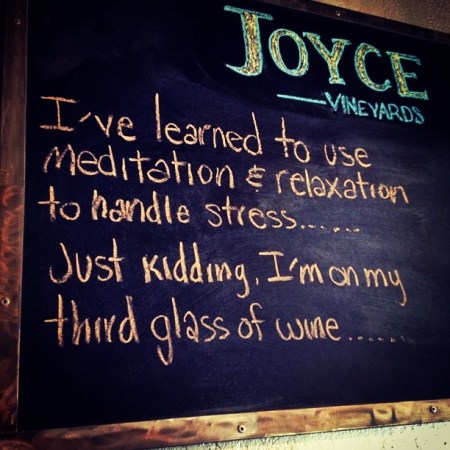 JOYCE
VINEYARDS
I've learned to use
meditation & relaxation
to handle stress......
Just kidding, I'm on my
third glass of wine......